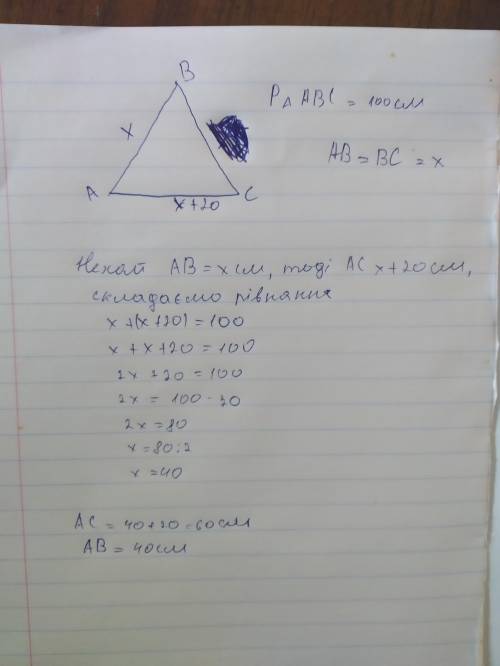 B
P△ ABC = 100см
x
AB = BC = x
A
x+20
C
Нехай AB = x см, тоді AC x+20 см,
складаємо рівняння
x+(x+20) = 100
x + x + 20 = 100
2x + 20 = 100
2x = 100 - 20
2x = 80
x = 80:2
x = 40
AC = 40+20 = 60см
AB = 40см